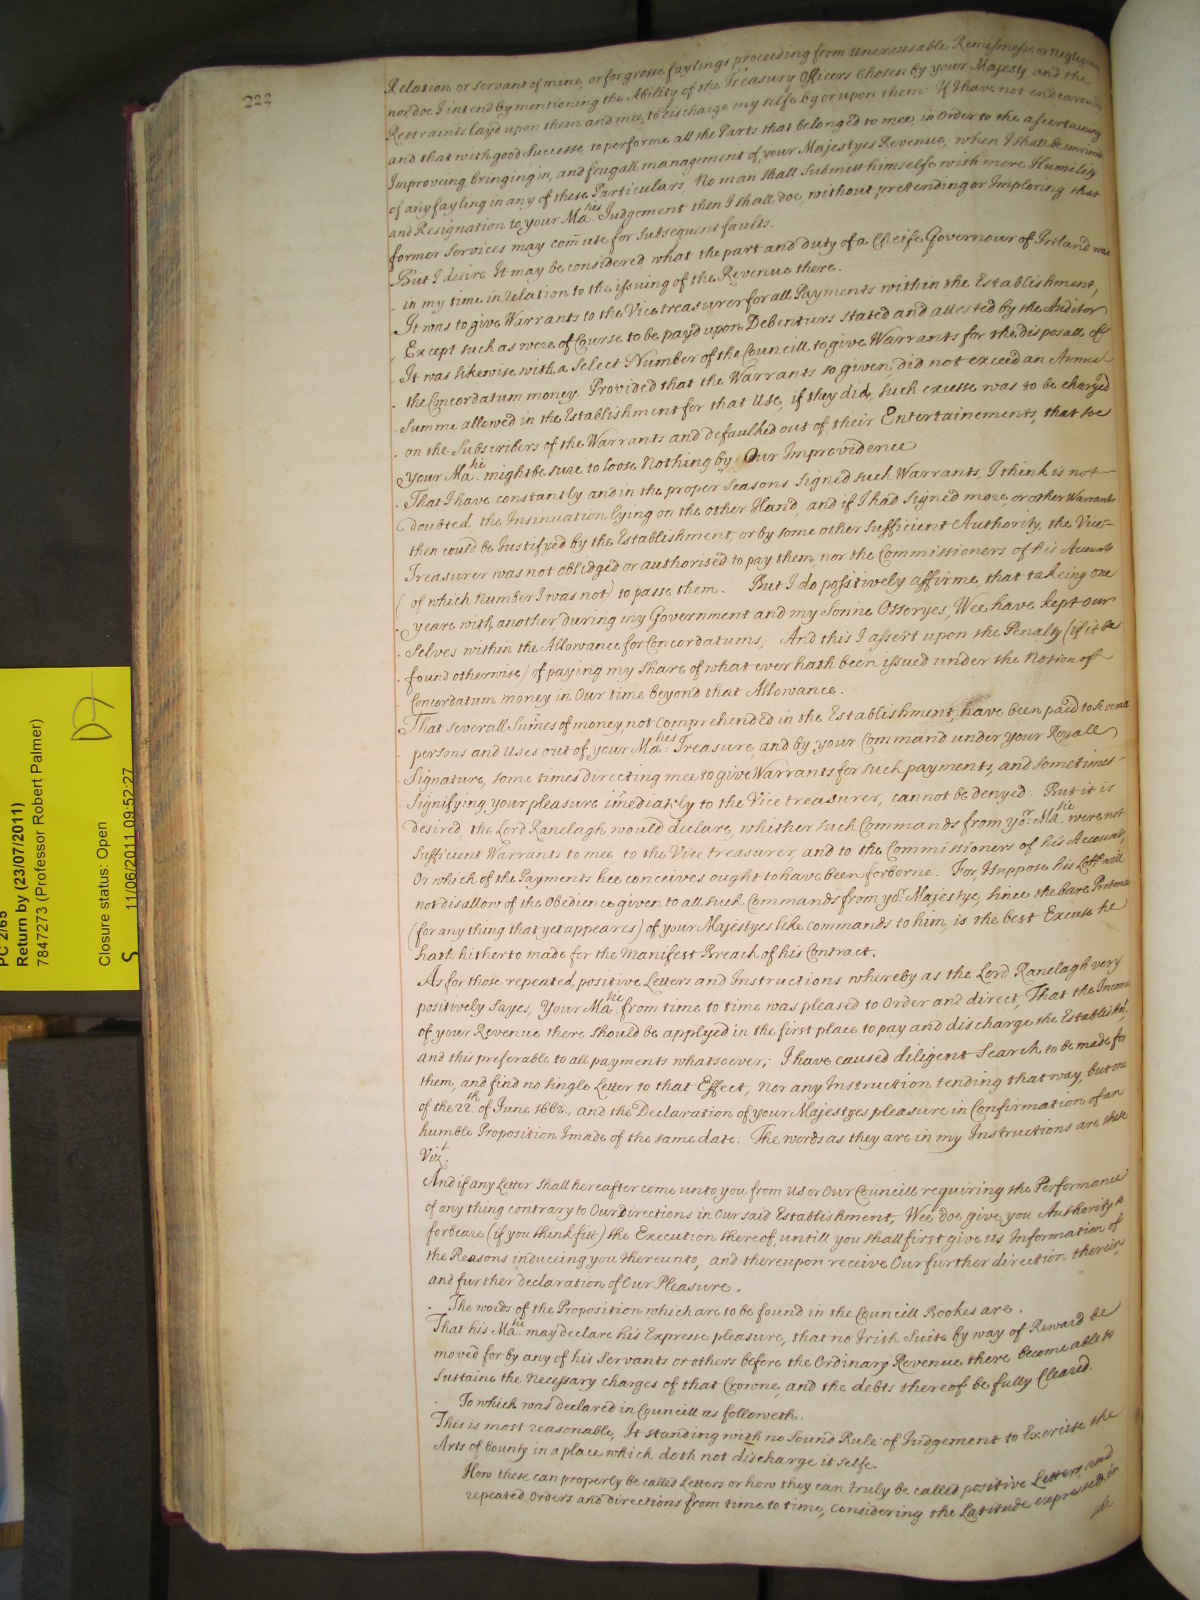 222
Relation or servant of mine, or for grosse faylings proceeding from unexcusable Remissnesse or Negligence
nor doe I intend by mentioning the Ability of the Treasury Officers chosen by your Majesty and the
Restraints layd upon them and mee, to discharge my selfe by or upon them. If I have not endeavoured
and that with good Successe, to performe all the Parts that belonged to mee in Order to the ascertaining
Improveing bringing in, and frugall management of, your Majestyes Revenue, when I shall be convinced
of any fayling in any of these Particulars, No man shall Submitt himselfe with more Humility
and Resignation to your Ma:ties Judgement then I shall doe, without pretending or Imploring that
former Services may com̄ute for Subsequent faults.
But I desire It may be considered what the part and duty of a Cheife Governour of Ireland was
in my time in Relation to the issuing of the Revenue there.
It was to give Warrants to the Vice treasurer for all Payments within the Establishment,
Except such as were of Course to be payd upon Debenturs stated and attested by the Auditor
It was likewise with a Select Number of the Councill, to give Warrants for the disposall of
the Concordatum money. Provided that the Warrants so given, did not exceed an Annual
Summe allowed in the Establishment for that Use, if they did, such excesse was to be charged
on the Subscribers of the Warrants and defaulked out of their Entertainements, that so
your Ma:tie might be sure to loose Nothing by Our Improvidence
That I have constantly and in the proper Seasons Signed such Warrants, I think is not
doubted, the Insinuation lying on the other Hand, and if I had Signed more, or other Warrants
then could be Justifyed by the Establishment, or by some other Sufficient Authority, the Vice-
Treasurer was not obliedged or authorised to pay them, nor the Commissioners of his Accounts
(of which Number I was not) to passe them. But I do possitively affirme, that takeing one
yeare with another, during my Government and my Sonne Ossoryes, Wee have kept our
selves within the Allowance for Concordatums, And this I assert upon the Penalty (if it be
found otherwise) of paying my Share of what ever hath been issued under the Notion of
Concordatum money in Our time beyond that Allowance.
That severall Sum̄es of money, not Comprehended in the Establishment, have been paed to severall
persons and Uses out of your Ma:ties Treasure, and by your Command under your Royall
Signature, some times directing mee to give Warrants for such payments, and sometimes
Signifying your pleasure im̄ediately to the Vice treasurer, cannot be denyed. But it is
desired the Lord Ranelagh would declare, whither such Commands from yor. Ma:tie were not
Sufficient Warrants to mee, to the Vice treasurer, and to the Commissioners of his Accounts,
Or which of the Payments hee conceives ought to have been forborne. For, I suppose his Lopp. will
not disallow of the Obedience given to all such Commands from yor. Majestye, since the bare Pretence
(for any thing that yet appeares) of your Majestyes like commands to him, is the best Excuse he
hath hitherto made for the Manifest Breach of his Contract.
As for those repeated, positive Letters and Instructions whereby as the Lord Ranelagh very
positively Sayes, Your Ma:tie from time to time was pleased to Order and direct, That the Income
of your Revenue there should be applyed in the first place to pay and discharge the Establishmt.
and this preferable to all payments whatsoever; I have caused diligent Search to be made for
them, and find no single Letter to that Effect, Nor any Instruction tending that way, but one
of the 22th. of June 1662, and the Declaration of your Majestyes pleasure in Confirmation of an
humble Proposition I made of the same date: The words as they are in my Instructions are these
Vizt.
And if any Letter shall hereafter come unto you from Us or Our Councill requiring the Performance
of any thing contrary to Our Directions in Our said Establishment, Wee doe give you Authority to
forbeare (if you think fitt) the Execution thereof, untill you shall first give us Information of
the Reasons induceing you thereunto, and thereupon receive Our further direction therein,
and further declaration of Our Pleasure.
The words of the Proposition which are to be found in the Councill Bookes are.
That his Ma:tie may declare his Expresse pleasure, that no Irish Suite by way of Reward be
moved for by any of his Servants or others before the Ordinary Revenue there become able to
Sustaine the Necessary charges of that Crowne, and the debts thereof be fully Cleared.
To which was declared in Councill as followeth.
This is most reasonable, It standing with no Sound Rule of Judgement to Exercise the
Arts of Bounty in a place which doth not discharge it selfe
How these can properly be called Letters or how they can truly be called positive Letters and
repeated Orders and directions from time to time, Considering the Latitude expressed in
the
PC 2/65
Return by (23/07/2011)
7847273 (Professor Robert Palmer)
Closure status: Open
11/06/2011 09:52:27
S
D7